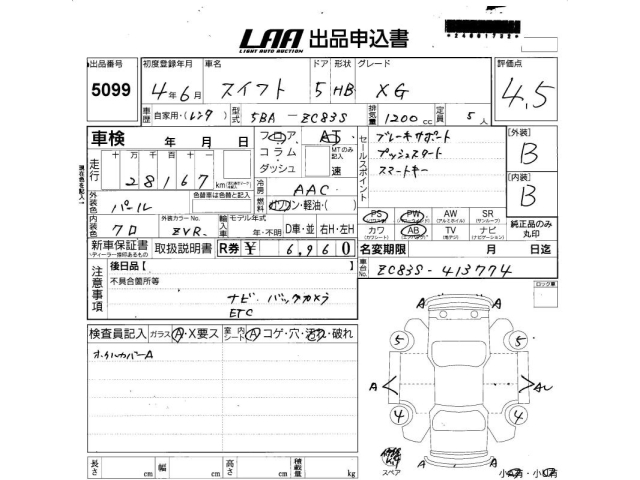 LAA 出品申込書
LIGHT AUTO AUCTION
出品番号 初度登録年月 車名 ドア 形状 グレード 評価点
5099 4年6月 スイフト 5 HB XG 4.5
車歴 自家用・(レンタ) 型式 5BA - ZC83S 排気量 1200 cc 定員 5 人
車検 年 月 日 フロア AT セールスポイント ブレーキサポート 【外装】
コラム MTのみ記入 プッシュスタート B
走行 十万 万 千 百 十 一 ダッシュ 速 スマートキー
28167 km 冷房 AAC 【内装】
外装色 パール 色替車は色替と記入 燃料 ガソリン・軽油・( ) B
PS PW AW SR
内装色 クロ 外装カラーNo. ZVR 輸入車 モデル年式 年・不明 D車・並 右H・左H カワ AB TV ナビ 純正品のみ丸印
新車保証書 取扱説明書 R券 ¥ 6,960 名変期限 月 日迄
注意事項 後日品【 】 車台No. ZC83S-413774
不具合箇所等 ロック車
ナビ・バックカメラ
ETC
検査員記入 ガラス A・X要ス 室内シート A コゲ・穴・汚れ・破れ
ホイルカバーA
A A
5 5
A A
4 4
A A
スペア
長さ cm 幅 cm 高さ cm 積載量 kg